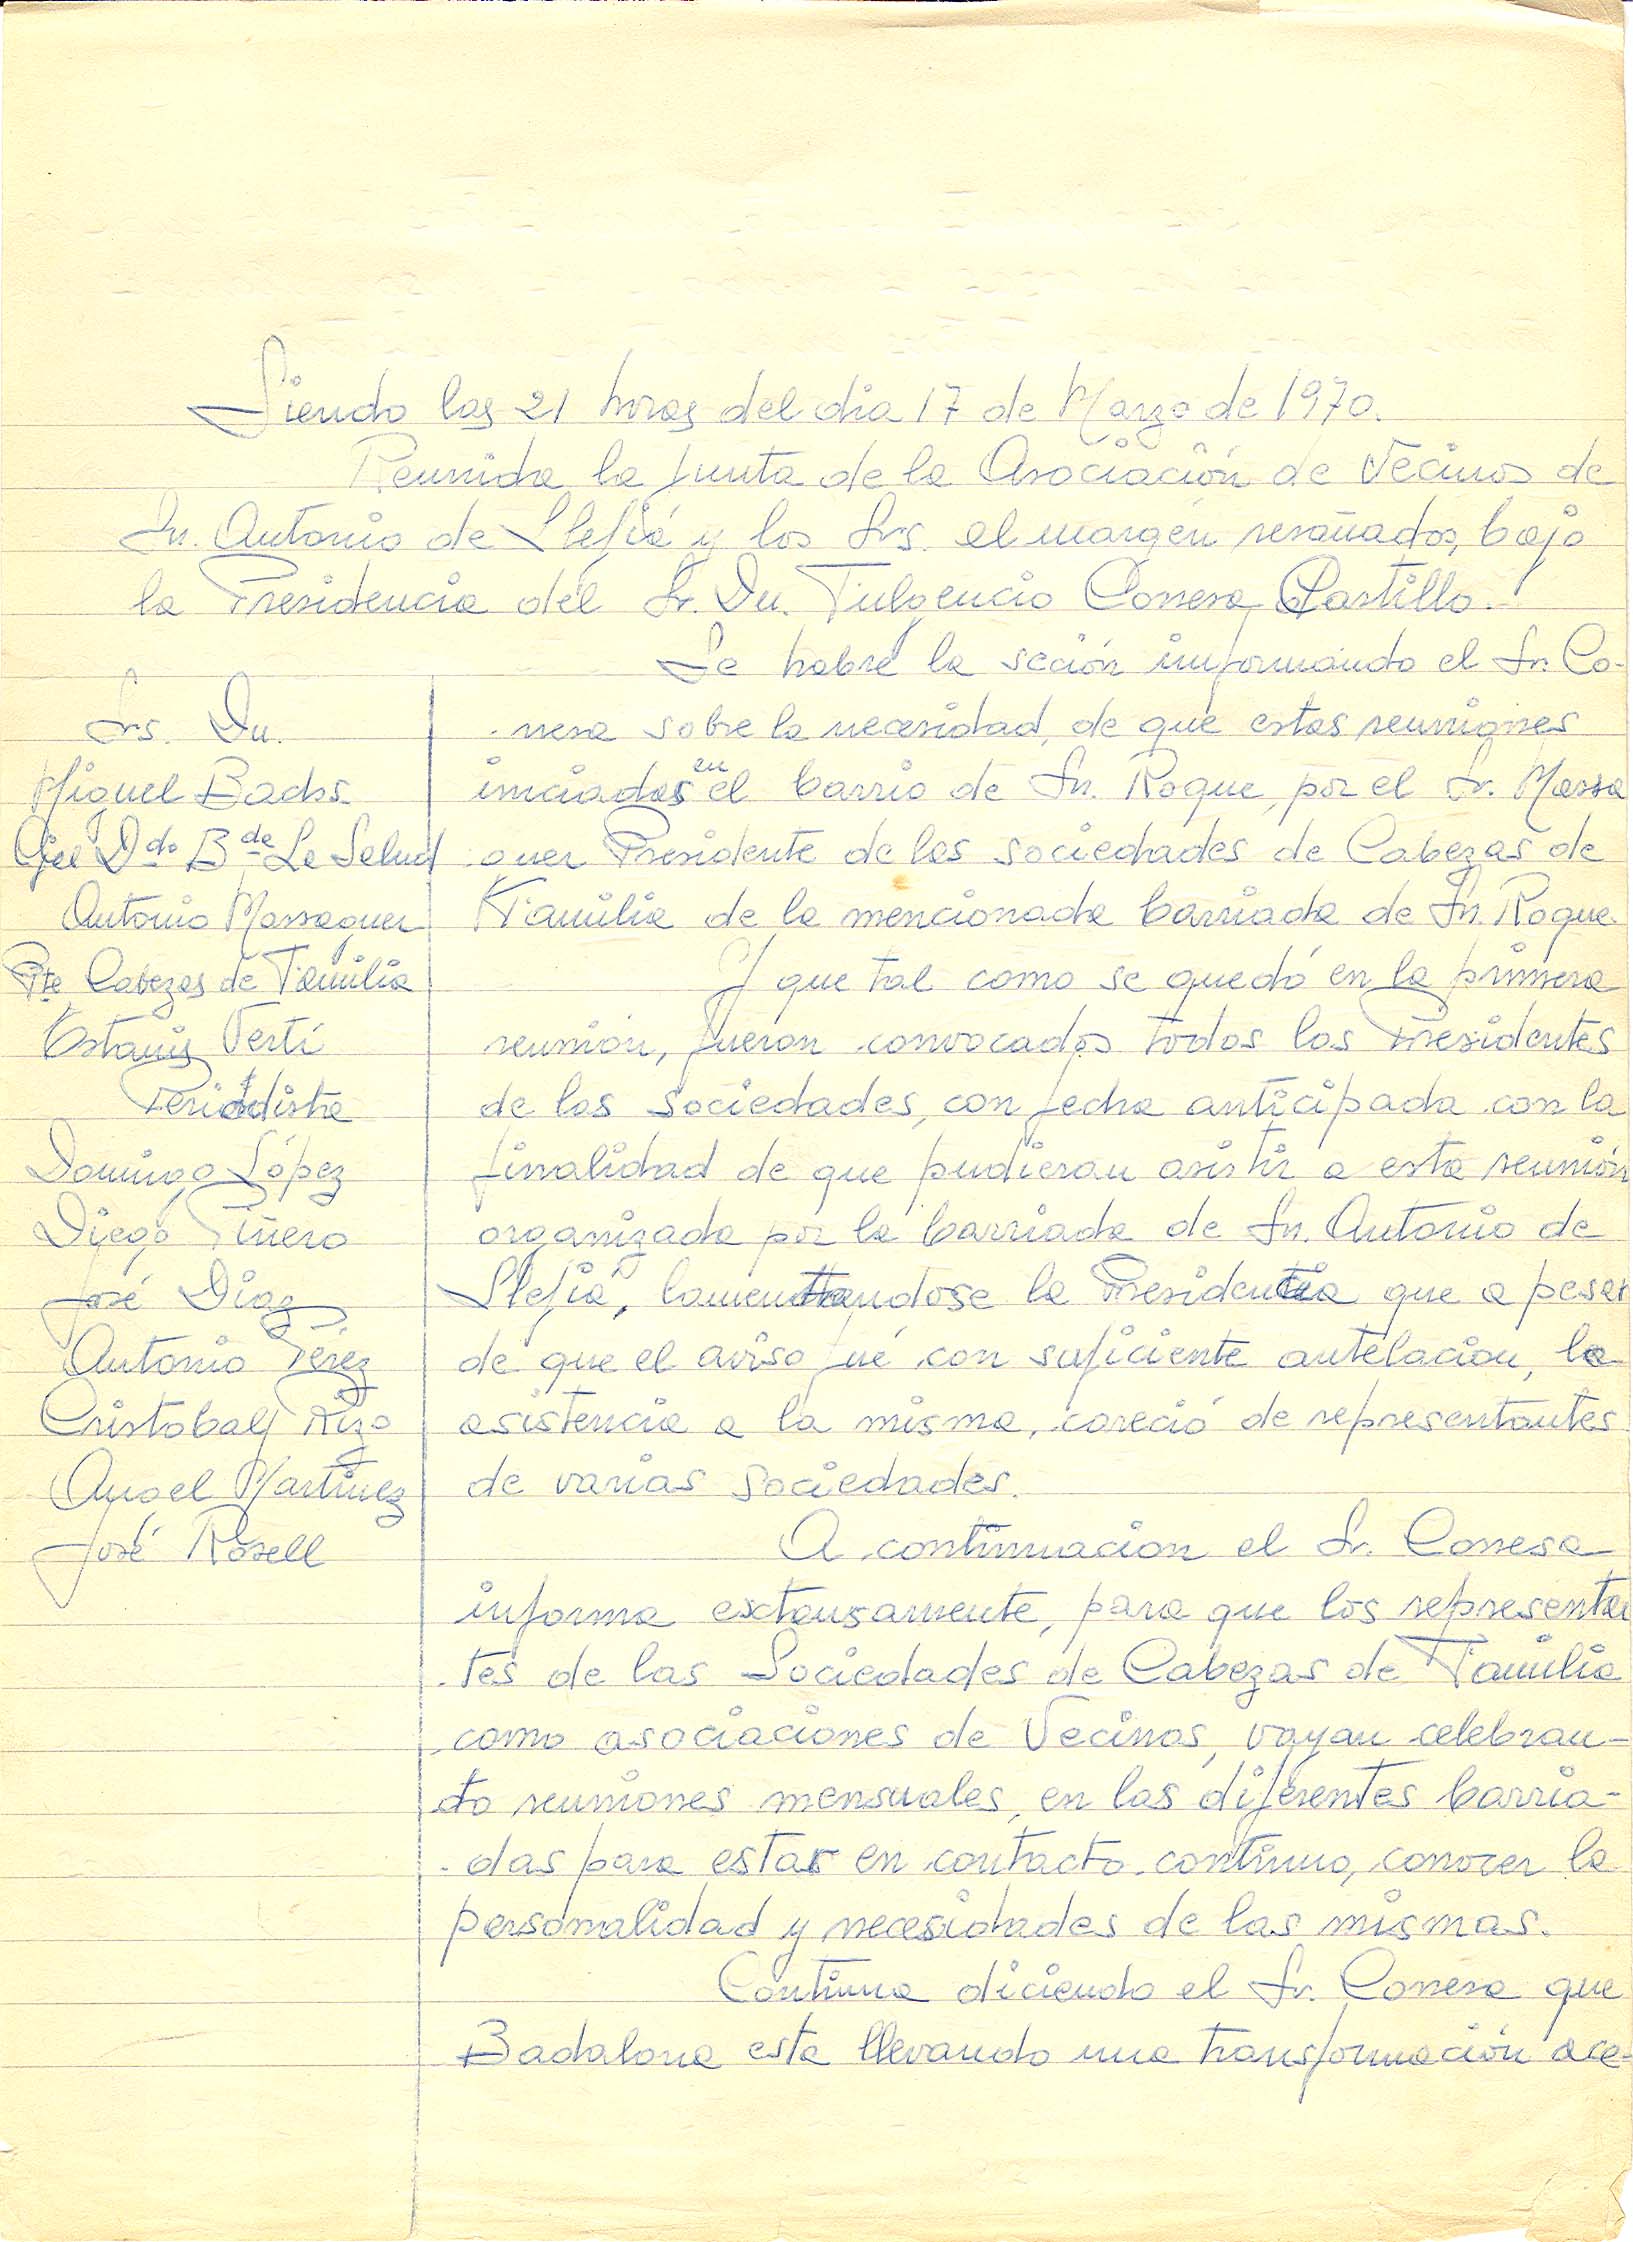 Siendo las 21 horas del dia 17 de Marzo de 1970.
Reunida la Junta de la Asociación de Vecinos de
Sn. Antonio de Llefiá y los Srs. al margen reseñados, bajo
la Presidencia del Sr. Dn. Fulgencio Conesa Castillo.
Se habre la seción informando el Sr. Co-
nesa sobre la necesidad, de que estas reuniones
iniciadas en el barrio de Sn. Roque, por el Sr. Massa
guer Presidente de las Sociedades de Cabezas de
Familia de la mencionada barriada de Sn. Roque.
Y que tal como se quedó en la primera
reunión, fueron convocados todos los Presidentes
de las Sociedades, con fecha anticipada con la
finalidad de que pudieran asistir a esta reunión
organizada por la barriada de Sn. Antonio de
Llefiá, lamentandose la Presidencia que a pesar
de que el aviso fué con suficiente antelacion, la
asistencia a la misma, careció de representantes
de varias Sociedades.
A continuacion el Sr. Conesa
informa extensamente, para que los representan
tes de las Sociedades de Cabezas de Familia
como asociaciones de Vecinos, vayan celebran-
do reuniones mensuales, en las diferentes barria-
das para estar en contacto continuo, conocer la
personalidad y necesidades de las mismas.
Continua diciendo el Sr. Conesa que
Badalona esta llevando una transformación ace-
Srs. Dn.
Miguel Bachs.
Ddo Bda de La Salud
Antonio Massaguer
Pte Cabezas de Familia
Estanis Vertí
Periodista
Domingo López
Diego Piñero
José Diaz
Antonio Pérez
Cristobal Rizo
Angel Martinez
José Rosell